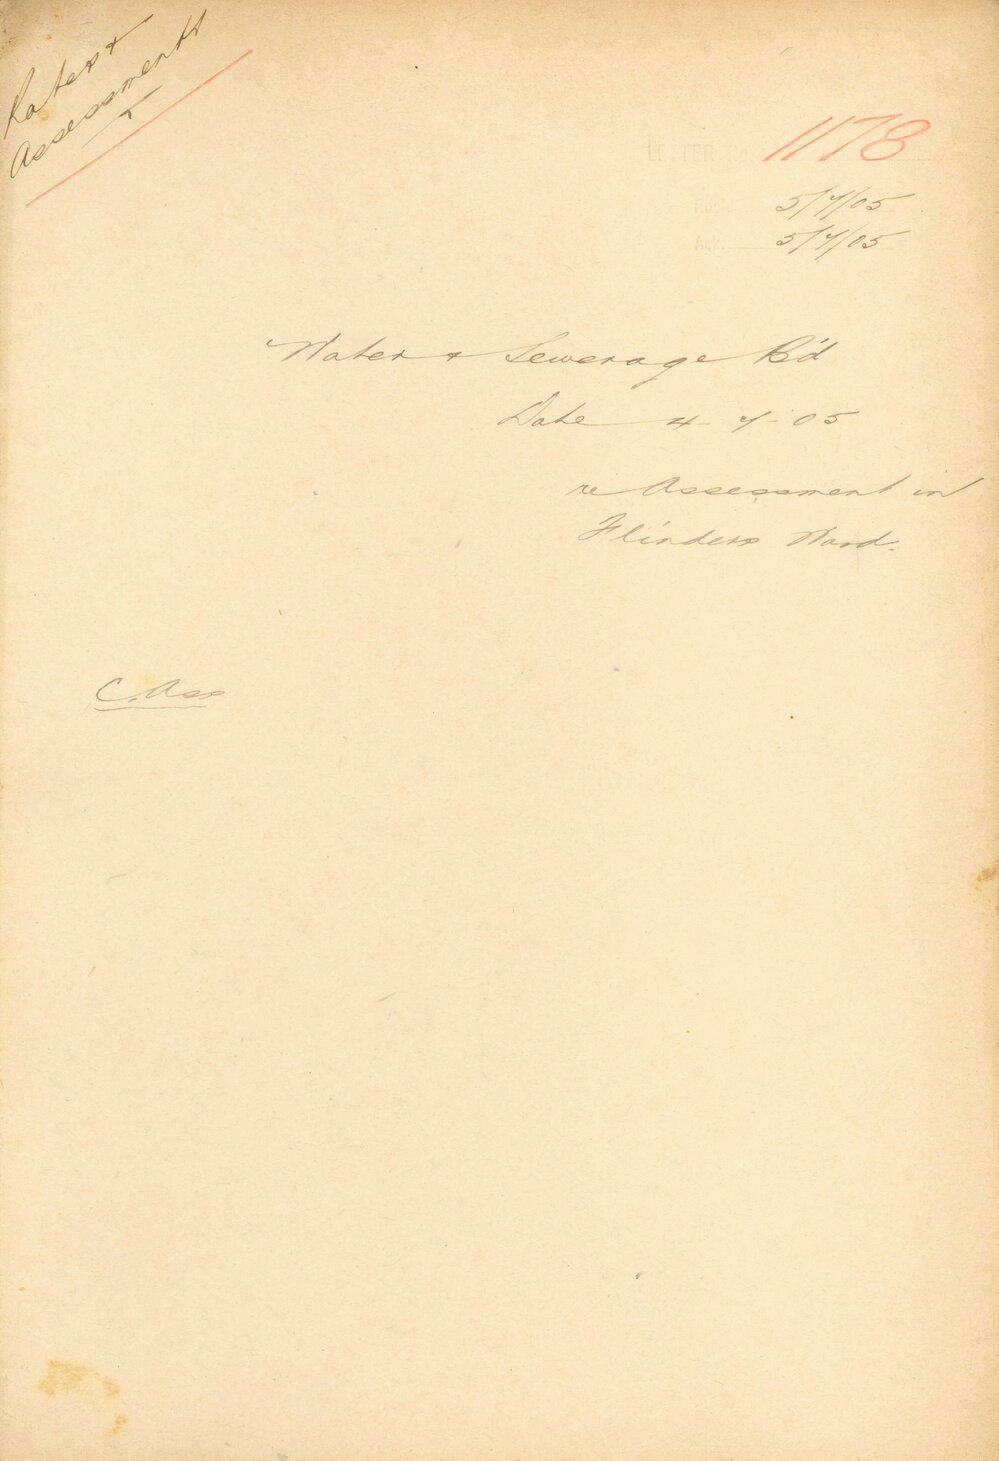 Rates &
Assessments
LETTER 1178
Recd 5/7/05
Ack. 5/7/05
Water & Sewerage B'd
Date 4-7-05
re Assessment in
Flinders Ward.
C. Ass